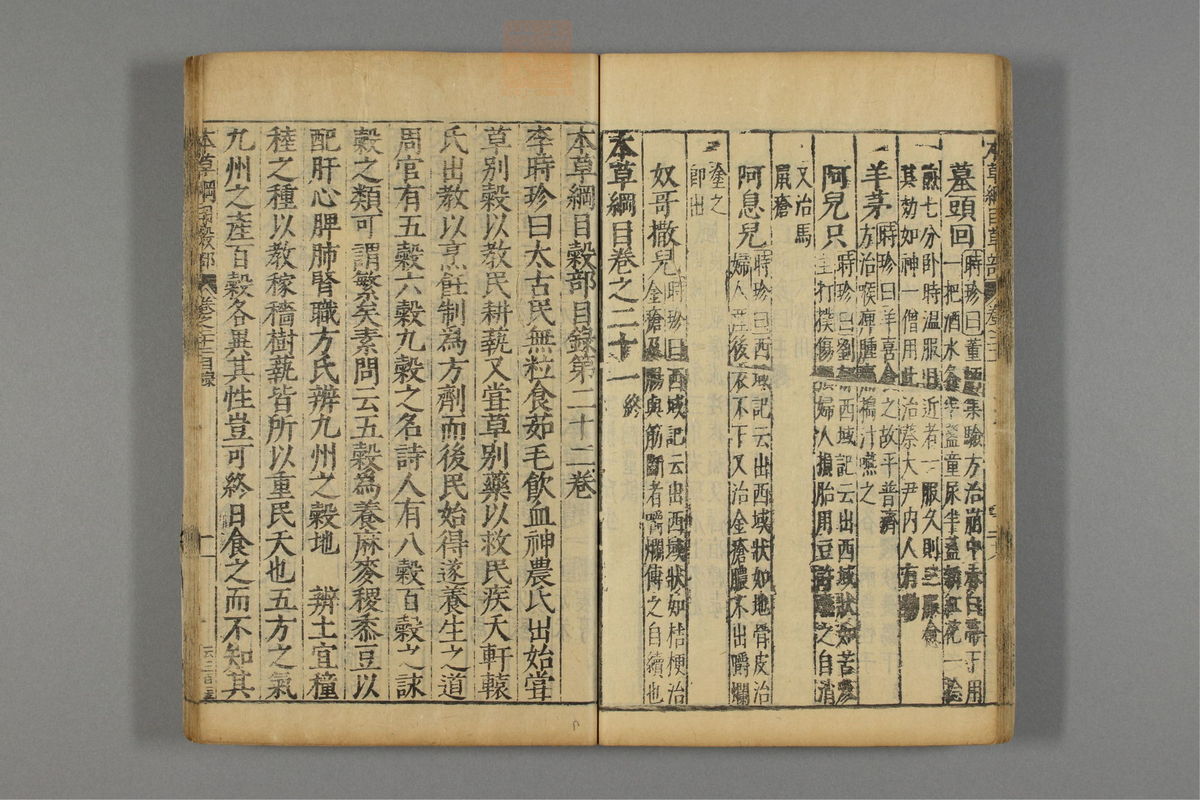 墓頭回 時珍曰董炳集驗方治崩中赤白帶下用
一把酒水各半盞童尿半盞新紅花一
煎七分卧時温服日近者一服久則三服
其効如神一僧用此治蔡大尹内人有
羊茅 時珍曰羊喜食之故平普濟
方治喉痺腫痛搗汁嚥之
阿兒只 時珍曰劉郁西域記云出西域狀如苦參
主打撲傷損婦人損胎用豆許嚥之自消
又治馬
鼠瘡
阿息兒 時珍曰西域記云出西域狀如地骨皮治
婦人産後衣不下又治金瘡膿不出嚼爛
塗之
即出
奴哥撒兒 時珍曰西域記云出西域狀如桔梗治
金瘡及腸與筋斷者嚼爛傅之自續也
本草綱目卷之二十一終
本草綱目穀部目録第二十二卷
李時珍曰太古民無粒食茹毛飲血神農氏出始嘗
草别穀以教民耕蓺又嘗草别藥以救民疾夭軒轅
氏出教以烹飪制為方劑而後民始得遂養生之道
周官有五穀六穀九穀之名詩人有八穀百穀之詠
穀之類可謂繁矣素問云五穀為養麻麥稷黍豆以
配肝心脾肺腎職方氏辨九州之穀地 辨土宜穜
稑之種以教稼穡樹蓺皆所以重民天也五方之氣
九州之產百穀各異其性豈可終日食之而不知其
本草綱目穀部 目録